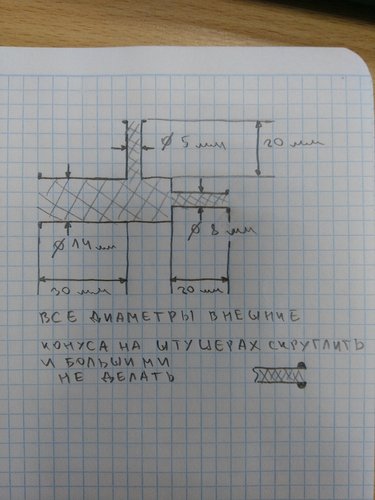 ⌀ 5 мм
20 мм
⌀ 14 мм
⌀ 8 мм
30 мм
20 мм
ВСЕ ДИАМЕТРЫ ВНЕШНИЕ
КОНУСА НА ШТУЦЕРАХ СКРУГЛИТЬ
И БОЛЬШИМИ
НЕ ДЕЛАТЬ